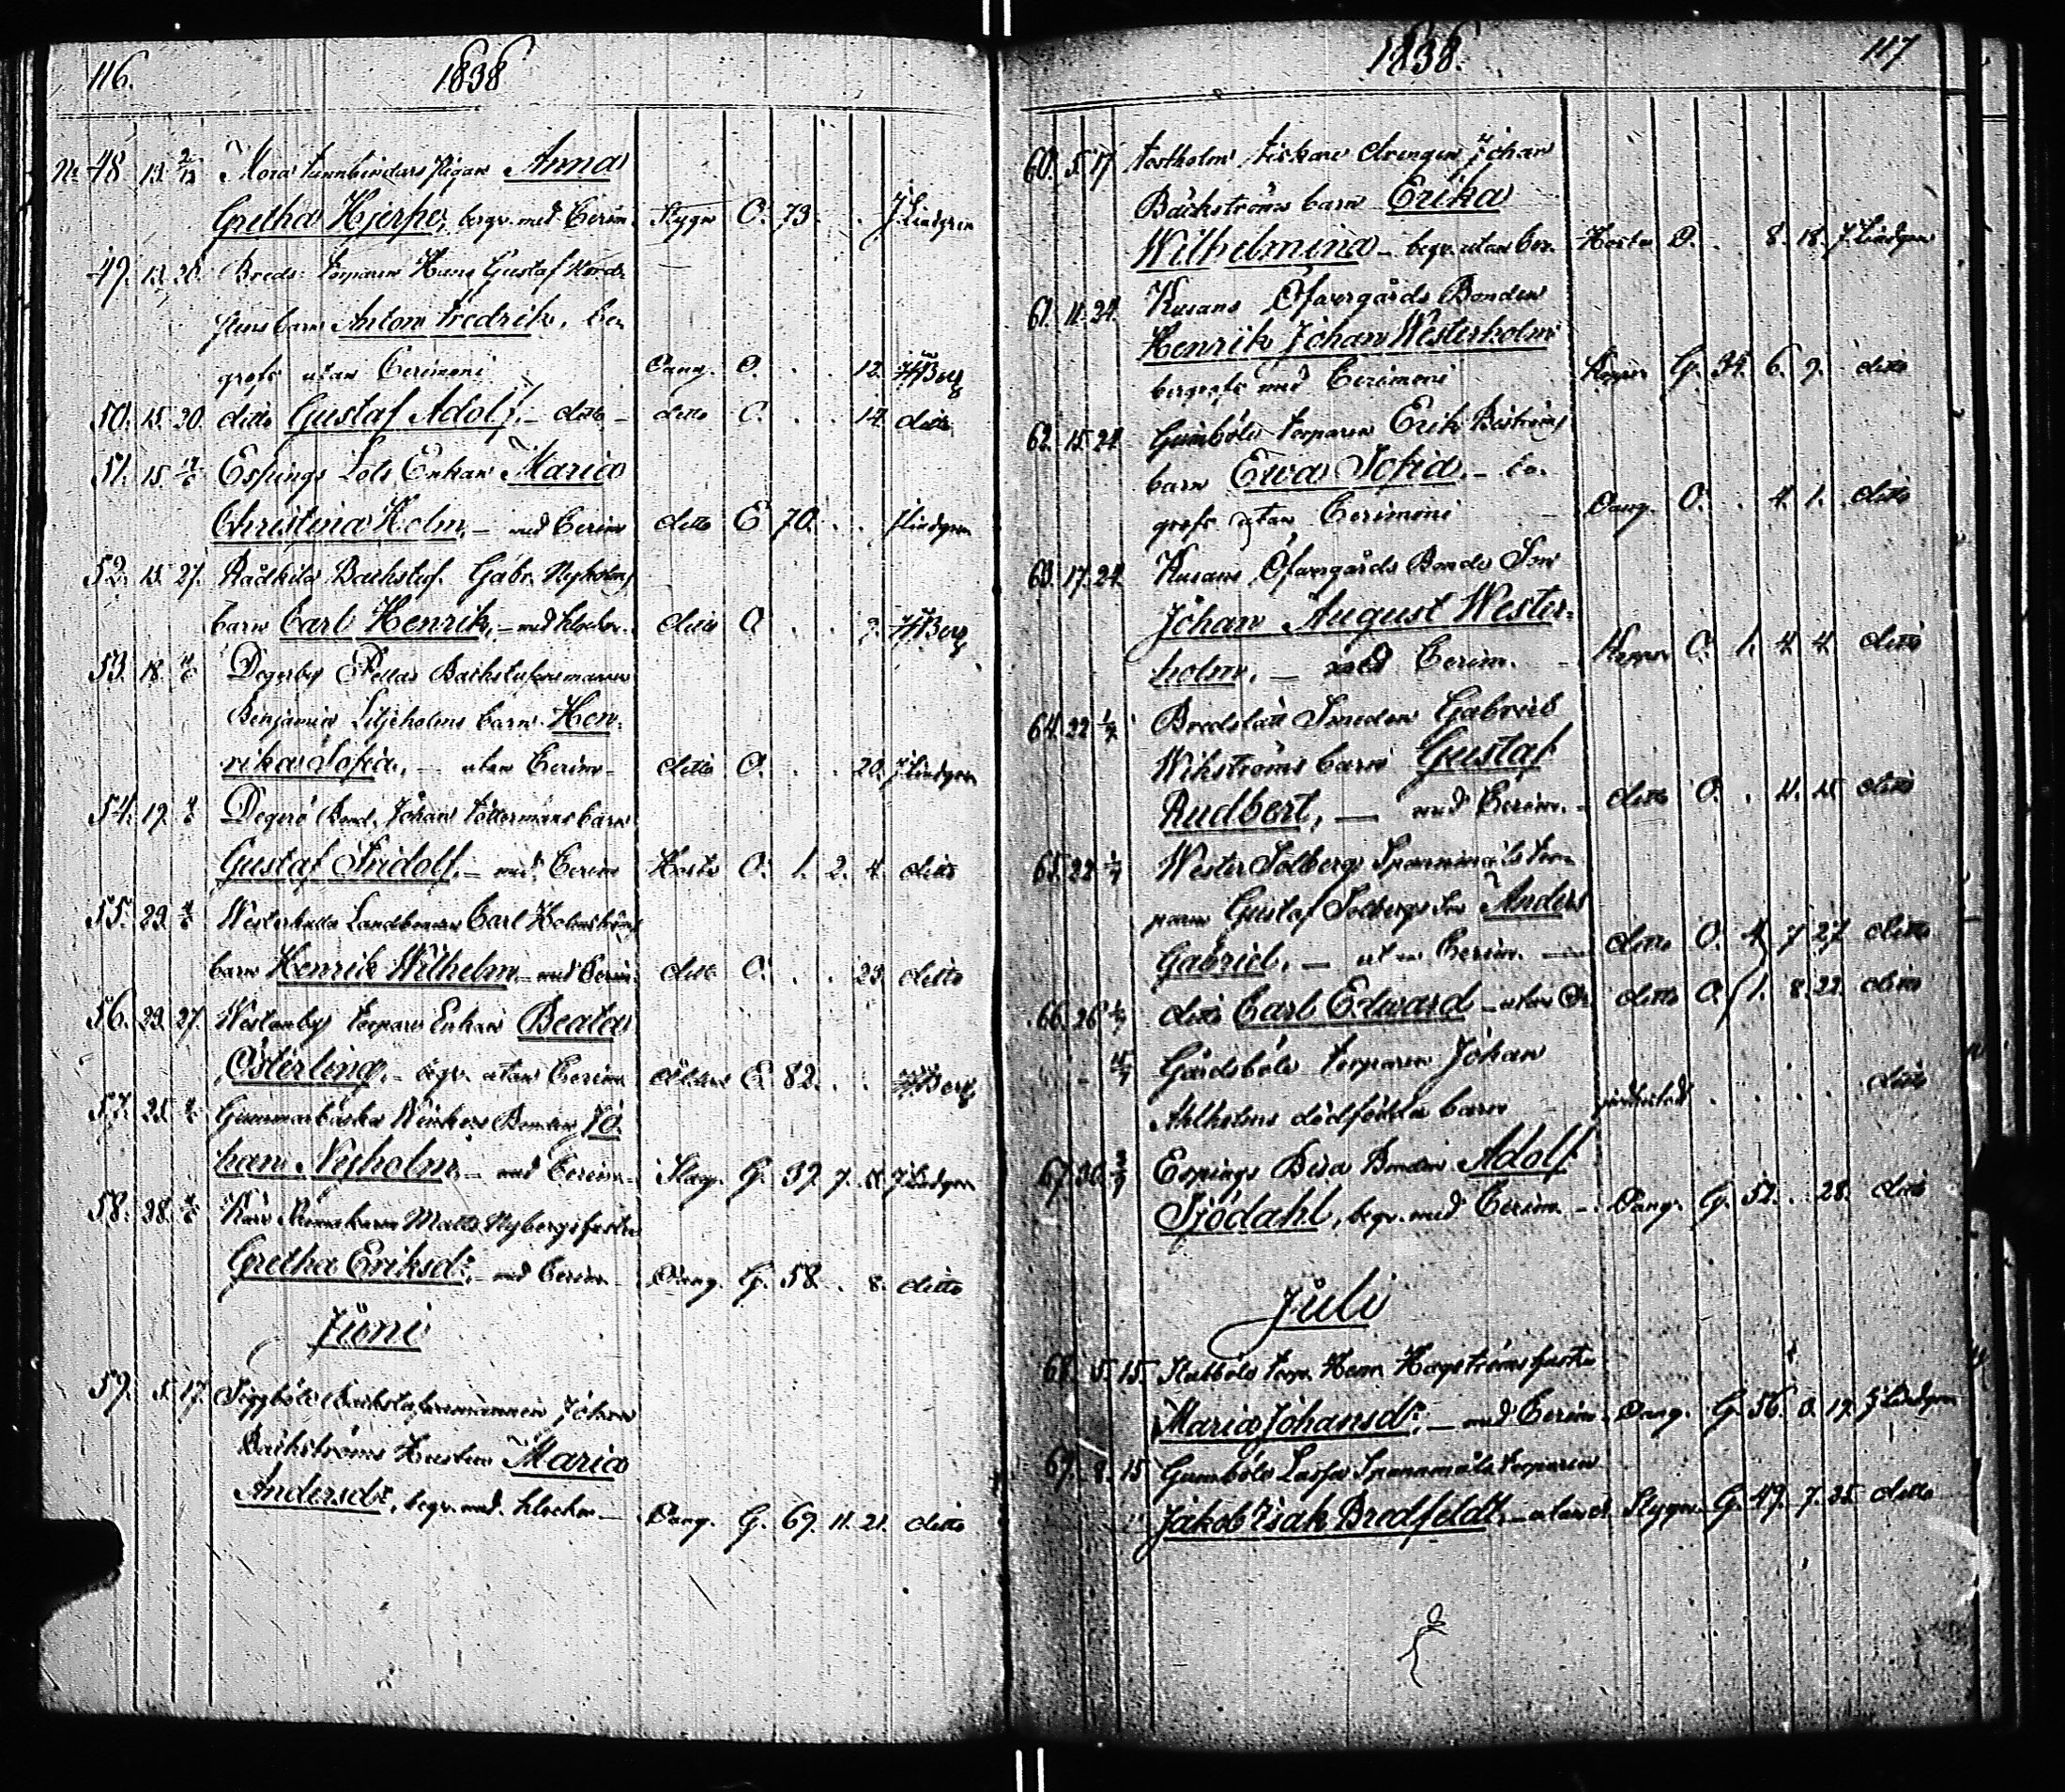 116. 1838
No 48 13. Mora tunnbindars Pigan Anna
Gretha Hjerpe, begr. med Cerim. Stygn O. 73. J. Lindgren
49. 13. 20. Breds. Torparen Hans Gustaf Nord-
stens barn Anton Fredrik, be-
grofs utan Cerimoni Oang. O. 12. Berg
50. 15. 20. ditto Gustaf Adolf, ditto ditto O. 14. ditto
51. 15. Espings Lots Enkan Maria
Christina Holm, med Cerim ditto E 70. J Lindgren
52. 15. 27. Rådkila Backstuf. Gabr. Nyholms
barn Carl Henrik, med klockor ditto O. Berg
53. 18. Degerby Pellas Backstufvumannen
Benjamin Liljeholms barn Hen-
rika Sofia, utan Cerim ditto O. 20. J. Lindgren
54. 19. Degerö Bond. Johan Söttermans barn
Gustaf Fridolf, med Cerim Hosta O. 1. 2. 4. ditto
55. 23. Westerkulla Landbonden Carl Holmströms
barn Henrik Wilhelm, med Cerim. ditto O. 23. ditto
56. 23. 27. Westanby torpare Enkan Beata
Österling, begr. utan Cerim. E. 82. Berg
57. 25. Gammarbäcka Bonden Jo-
han Nyholm, med Cerim. Slag. G. 39. 7. 11. J Lindgren
58. 28. Matts Nybergs hustru
Gretha Eriksdr, med Cerim Oang. G. 58. 8. ditto
Juni
59. 5. 17. Siggböle Backstufvumannen Johan
Bäckströms Hustru Maria
Andersdr, begr. med klockor Oang. G. 69. 11. 21. ditto
1838. 117
60. 5. 17 Fiskare drengen Johan
Bäckströms barn Erika
Wilhelmina begr. utan Cer. Hosta O. 8. 18. J. Lindgren
61. 11. 24. Kusans Öfvergårds Bonden
Henrik Johan Westerholm
begrofs med Cerimoni G. 34. 6. 9. ditto
62. 15. 24. Gumböle torparen Erik Biströms
barn Ewa Sofia, be-
grofs utan Cerimoni Oang. O. 4. 1. ditto
63. 17. 24. Kusans Öfvergårds Bonde Son
Johan August Wester-
holm, med Cerim. Koppor O. 1. 4. 4. ditto
64. 22 Bredslätt Smeden Gabriel
Wikströms barn Gustaf
Rudbert, med Cerim. ditto O. 4. 15. ditto
65. 22 Wester Solberg Spannmåls tor-
paren Gustaf Solbergs Son Anders
Gabriel, utan Cerim. ditto O. 4 7 27 ditto
66. 26 ditto Carl Edward utan Cr. ditto O. 1. 8. 22. ditto
Gårdsböle torparen Johan
Ahlholms dödfödda barn ditto
67. 30. Espings Bisa Bonden Adolf
Sjödahl, begr. med Cerim. Oang. G. 52. 28. ditto
Juli
68. 5. 15. Stabböle torp. Henr. Hagströms hustru
Maria Johansdr, med Cerim. Oang. G. 56. 0. 19. J Lindgren
69. 8. 15 Gumböle Lassa Spanamåls torparen
Jakob Isak Bredfeldt, utan d. Stygn G. 49. 7. 25. ditto